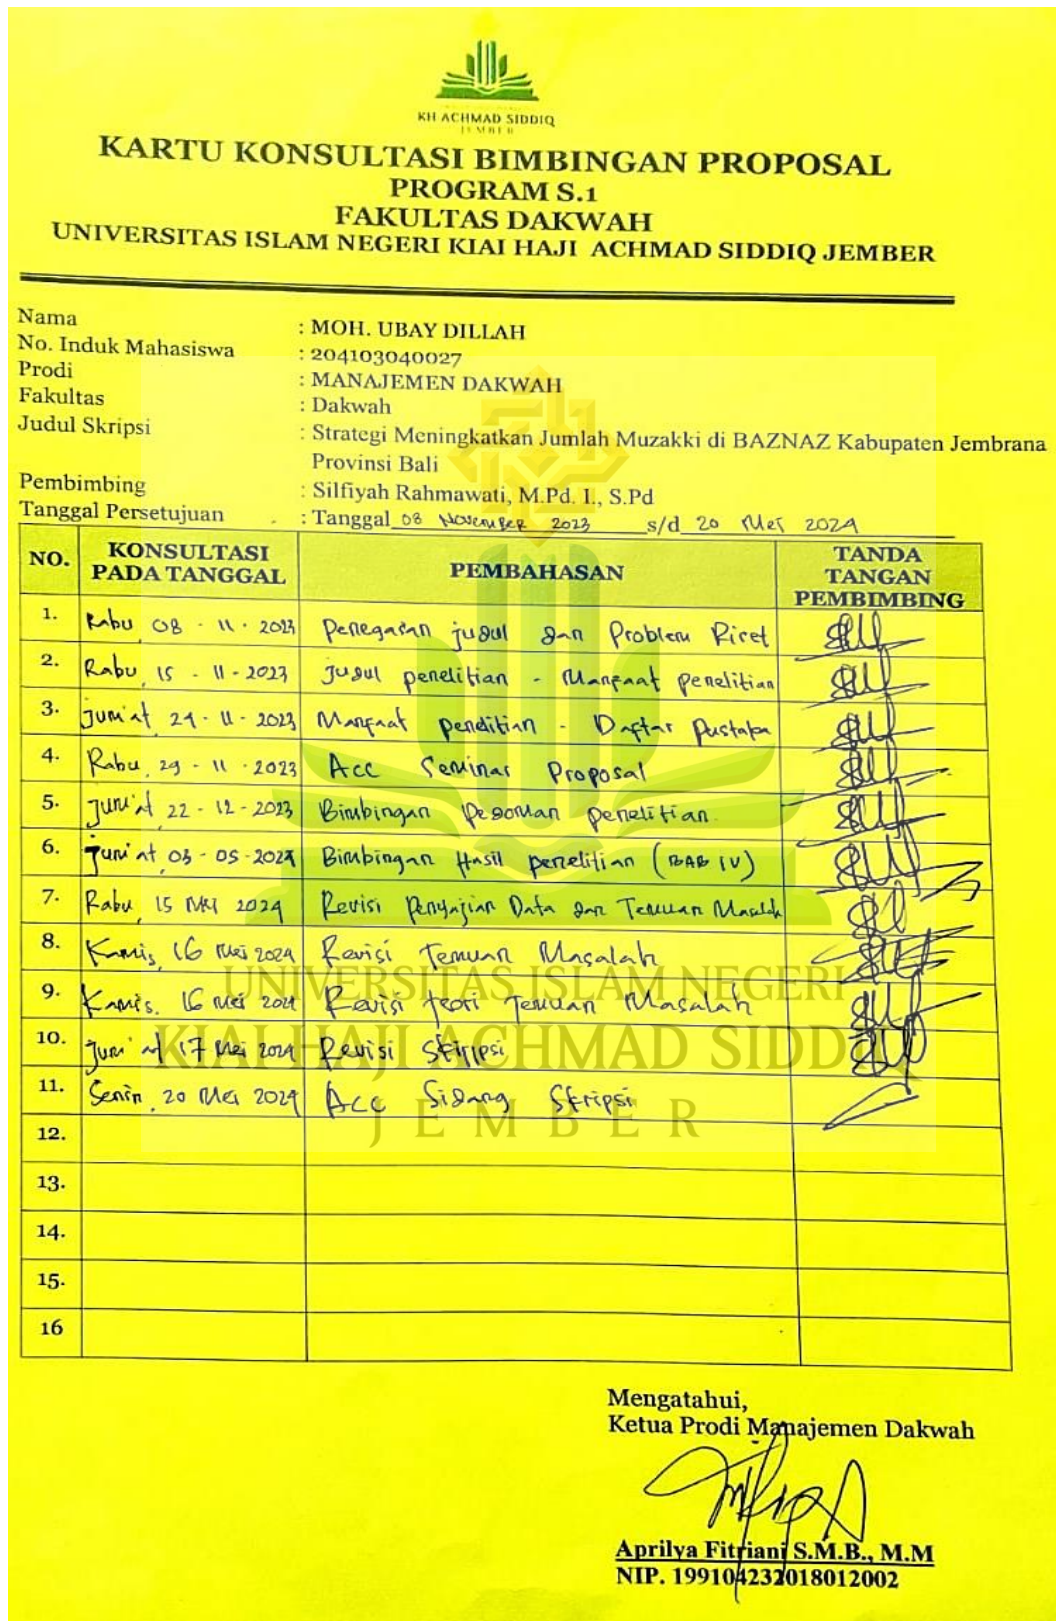 KH ACHMAD SIDDIQ
JEMBER
KARTU KONSULTASI BIMBINGAN PROPOSAL
PROGRAM S.1
FAKULTAS DAKWAH
UNIVERSITAS ISLAM NEGERI KIAI HAJI ACHMAD SIDDIQ JEMBER
Nama : MOH. UBAY DILLAH
No. Induk Mahasiswa : 204103040027
Prodi : MANAJEMEN DAKWAH
Fakultas : Dakwah
Judul Skripsi : Strategi Meningkatkan Jumlah Muzakki di BAZNAZ Kabupaten Jembrana
Provinsi Bali
Pembimbing : Silfiyah Rahmawati, M.Pd. I., S.Pd
Tanggal Persetujuan : Tanggal 08 November 2023 s/d 20 Mei 2024
NO. KONSULTASI PADA TANGGAL PEMBAHASAN TANDA TANGAN PEMBIMBING
1. Rabu, 08 - 11 - 2023 Penegasan judul dan Problem Riset
2. Rabu, 15 - 11 - 2023 Judul penelitian - Manfaat penelitian
3. Jum'at, 24 - 11 - 2023 Manfaat penelitian - Daftar Pustaka
4. Rabu, 29 - 11 - 2023 Acc Seminar Proposal
5. Jum'at, 22 - 12 - 2023 Bimbingan Pedoman penelitian.
6. Jum'at, 03 - 05 - 2024 Bimbingan Hasil penelitian (BAB IV)
7. Rabu, 15 Mei 2024 Revisi Penyajian Data dan Temuan Masalah
8. Kamis, 16 Mei 2024 Revisi Temuan Masalah
9. Kamis, 16 Mei 2024 Revisi teori Temuan Masalah
10. Jum'at 17 Mei 2024 Revisi Skripsi
11. Senin, 20 Mei 2024 Acc Sidang Skripsi
12.
13.
14.
15.
16
UNIVERSITAS ISLAM NEGERI
KIAI HAJI ACHMAD SIDDIQ
JEMBER
Mengatahui,
Ketua Prodi Manajemen Dakwah
Aprilya Fitriani S.M.B., M.M
NIP. 199104232018012002